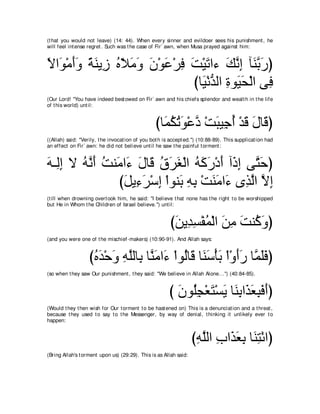 (that you would not leave) (14: 44). When every sinner and evildoer sees his punishment, he
will feel intense regret. Such was the case of Fir`awn, when Musa prayed against him:
(رَبَّنَآ إِنَّكَ ءاتَيْتَ فِرْعَوْنَ وَمَلأهُ زِينَةً وَأَمْوَالاً
فِى الْحَيَوةِ الدُّنْيَا)
(Our Lord! "You have indeed bestowed on Fir`awn and his chiefs splendor and wealth in the life
of this world) until:
(قَالَ قَدْ أُجِيبَتْ دَّعْوَتُكُمَا)
((Allah) said: "Verily, the invocation of you both is accepted.") (10:88-89). This supplication had
an effect on Fir`awn: he did not believe until he saw the painful torment:
(حَتَّى إِذَآ أَدْرَكَهُ الْغَرَقُ قَالَ ءَامَنتُ أَنَّهُ لا إِلِـهَ
إِلاَّ الَّذِى ءَامَنَتْ بِهِ بَنواْ إِسْرَءِيلَ)
(till when drowning overtook him, he said: "I believe that none has the right to be worshipped
but He in Whom the Children of Israel believe.") until:
(وَكُنتَ مِنَ الْمُفْسِدِينَ)
(and you were one of the mischief-makers) (10:90-91). And Allah says:
(فَلَمَّا رَأَوْاْ بَأْسَنَا قَالُواْ ءَامَنَّا بِاللَّهِ وَحْدَهُ)
(so when they saw Our punishment, they said: "We believe in Allah Alone...") (40:84-85).
(أَفَبِعَذَابِنَا يَسْتَعْجِلُونَ )
(Would they then wish for Our torment to be hastened on) This is a denunciation and a threat,
because they used to say to the Messenger, by way of denial, thinking it unlikely ever to
happen:
(ائْتِنَا بِعَذَابِ اللَّهِ)
(Bring Allah's torment upon us) (29:29). This is as Allah said: